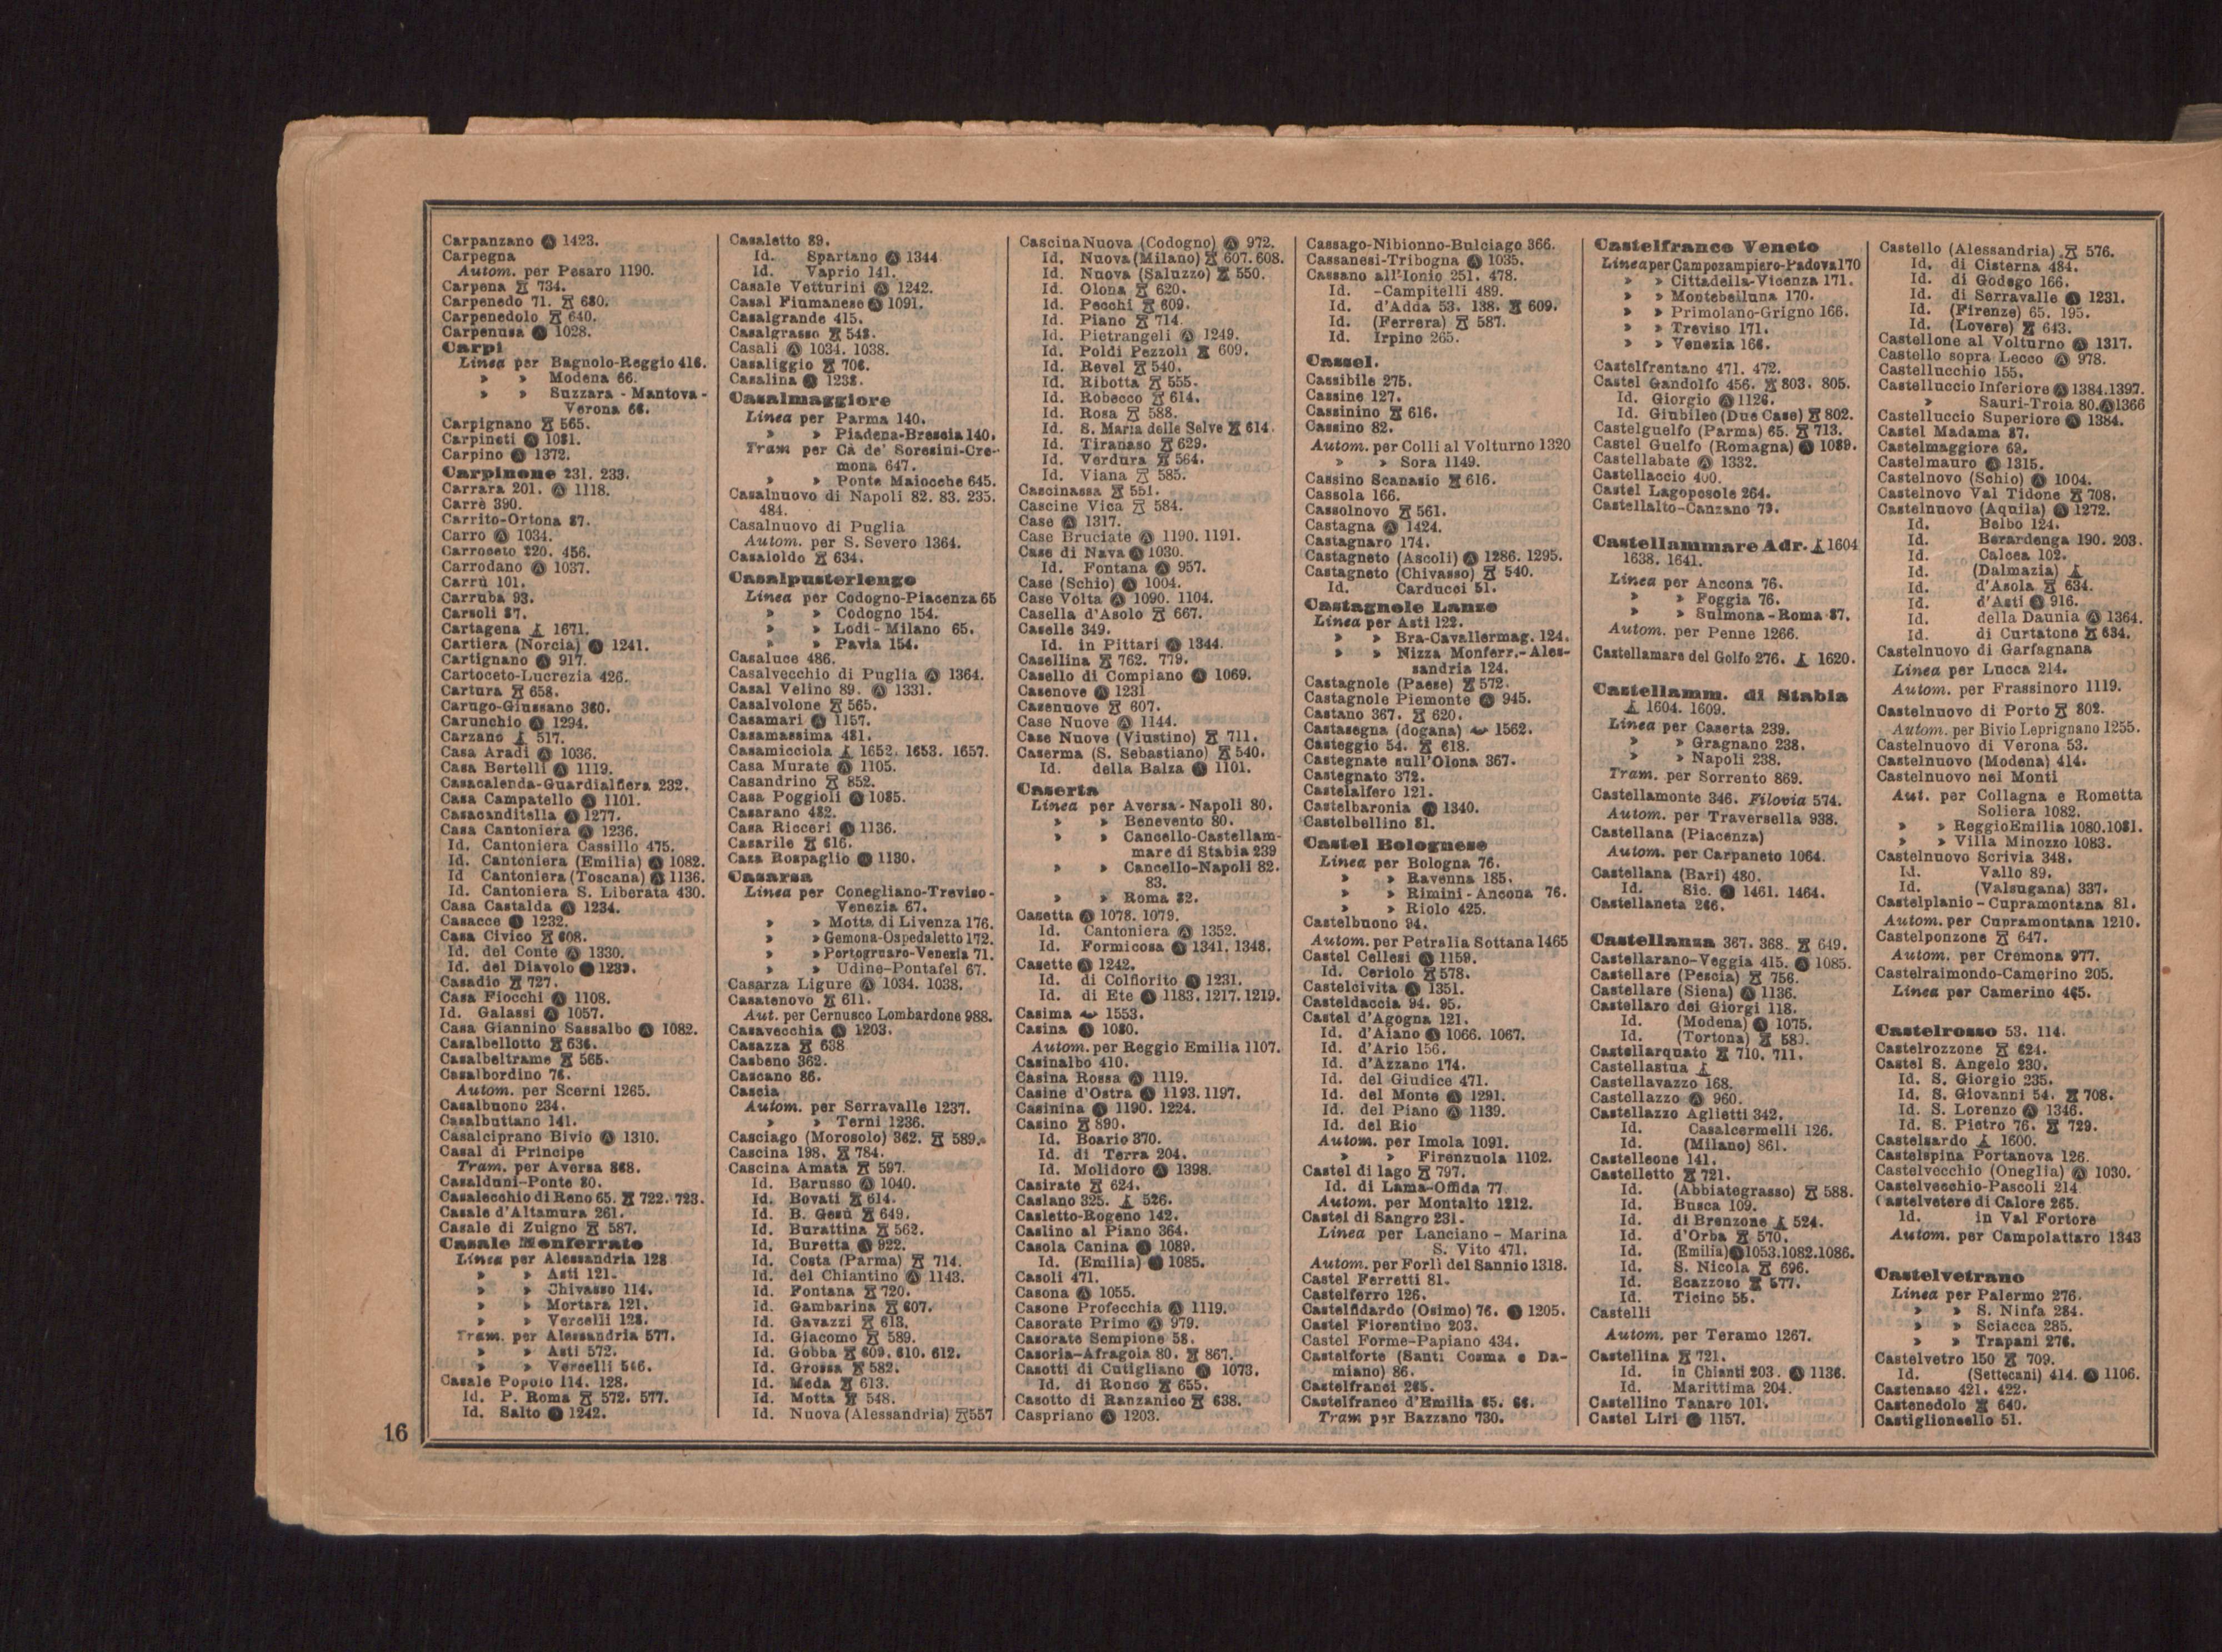 Carpanzano Ⓐ 1423.
Carpegna
Autom. per Pesaro 1190.
Carpena 734.
Carpenedo 71. 680.
Carpenedolo 640.
Carpenusa Ⓐ 1028.
Carpi
Linea per Bagnolo-Reggio 416.
» » Modena 66.
» » Suzzara - Mantova -
Verona 66.
Carpignano 565.
Carpineti Ⓐ 1081.
Carpino Ⓐ 1372.
Carpinone 231. 233.
Carrara 201. Ⓐ 1118.
Carrè 390.
Carrito-Ortona 87.
Carro Ⓐ 1034.
Carroceto 220. 456.
Carrodano Ⓐ 1037.
Carrù 101.
Carruba 93.
Carsoli 87.
Cartagena 1671.
Cartiera (Norcia) Ⓐ 1241.
Cartignano Ⓐ 917.
Cartoceto-Lucrezia 426.
Cartura 658.
Carugo-Giussano 360.
Carunchio Ⓐ 1294.
Carzano 517.
Casa Aradi Ⓐ 1036.
Casa Bertelli Ⓐ 1119.
Casacalenda-Guardialfiera 232.
Casa Campatello Ⓐ 1101.
Casacanditella Ⓐ 1277.
Casa Cantoniera Ⓐ 1236.
Id. Cantoniera Cassillo 475.
Id. Cantoniera (Emilia) Ⓐ 1082.
Id Cantoniera (Toscana) Ⓐ 1136.
Id. Cantoniera S. Liberata 430.
Casa Castalda Ⓐ 1234.
Casacce Ⓐ 1232.
Casa Civico 608.
Id. del Conte Ⓐ 1330.
Id. del Diavolo Ⓐ 1239.
Casadio 727.
Casa Fiocchi Ⓐ 1108.
Id. Galassi Ⓐ 1057.
Casa Giannino Sassalbo Ⓐ 1082.
Casalbellotto 636.
Casalbeltrame 565.
Casalbordino 76.
Autom. per Scerni 1265.
Casalbuono 234.
Casalbuttano 141.
Casalciprano Bivio Ⓐ 1310.
Casal di Principe
Tram. per Aversa 868.
Casalduni-Ponte 80.
Casalecchio di Reno 65. 722. 723.
Casale d'Altamura 261.
Casale di Zuigno 587.
Casale Monferrato
Linea per Alessandria 128
» » Asti 121.
» » Chivasso 114.
» » Mortara 121.
» » Vercelli 128.
Tram. per Alessandria 577.
» » Asti 572.
» » Vercelli 566.
Casale Popolo 114. 128.
Id. P. Roma 572. 577.
Id. Salto Ⓐ 1242.
16
Casaletto 89.
Id. Spartano Ⓐ 1344
Id. Vaprio 141.
Casale Vetturini Ⓐ 1242.
Casal Fiumanese Ⓐ 1091.
Casalgrande 415.
Casalgrasso 548.
Casali Ⓐ 1034. 1038.
Casaliggio 706.
Casalina Ⓐ 1238.
Casalmaggiore
Linea per Parma 140.
» » Piadena-Brescia 140.
Tram per Cà de' Soresini-Cre-
mona 647.
» » Ponte Maiocche 645.
Casalnuovo di Napoli 82. 83. 235.
484.
Casalnuovo di Puglia
Autom. per S. Severo 1364.
Casaloldo 634.
Casalpusterlengo
Linea per Codogno-Piacenza 65
» » Codogno 154.
» » Lodi - Milano 65.
» » Pavia 154.
Casaluce 486.
Casalvecchio di Puglia Ⓐ 1364.
Casal Velino 89. Ⓐ 1331.
Casalvolone 565.
Casamari Ⓐ 1157.
Casamassima 481.
Casamicciola 1652. 1653. 1657.
Casa Murate Ⓐ 1105.
Casandrino 852.
Casa Poggioli Ⓐ 1085.
Casarano 482.
Casa Ricceri Ⓐ 1136.
Casarile 616.
Casa Rospaglio Ⓐ 1130.
Casarsa
Linea per Conegliano-Treviso-
Venezia 67.
» » Motta di Livenza 176.
» » Gemona-Ospedaletto 172.
» » Portogruaro-Venezia 71.
» » Udine-Pontafel 67.
Casarza Ligure Ⓐ 1034. 1038.
Casatenovo 611.
Aut. per Cernusco Lombardone 988.
Casavecchia Ⓐ 1203.
Casazza 638
Casbeno 362.
Cascano 86.
Cascia
Autom. per Serravalle 1237.
» » Terni 1236.
Casciago (Morosolo) 362. 589.
Cascina 198. 784.
Cascina Amata 597.
Id. Barusso Ⓐ 1040.
Id. Bovati 614.
Id. B. Gesù 649.
Id. Burattina 562.
Id. Buretta Ⓐ 922.
Id. Costa (Parma) 714.
Id. del Chiantino Ⓐ 1143.
Id. Fontana 720.
Id. Gambarina 607.
Id. Gavazzi 613.
Id. Giacomo 589.
Id. Gobba 609. 610. 612.
Id. Grossa 582.
Id. Meda 613.
Id. Motta 548.
Id. Nuova (Alessandria) 557
Cascina Nuova (Codogno) Ⓐ 972.
Id. Nuova (Milano) 607. 608.
Id. Nuova (Saluzzo) 550.
Id. Olona 620.
Id. Pecchi 609.
Id. Piano 714.
Id. Pietrangeli Ⓐ 1249.
Id. Poldi Pezzoli 609.
Id. Revel 540.
Id. Ribotta 555.
Id. Robecco 614.
Id. Rosa 588.
Id. S. Maria delle Selve 614.
Id. Tiranaso 629.
Id. Verdura 564.
Id. Viana 585.
Cascinassa 551.
Cascine Vica 584.
Case Ⓐ 1317.
Case Bruciate Ⓐ 1190. 1191.
Case di Nava Ⓐ 1030.
Id. Fontana Ⓐ 957.
Case (Schio) Ⓐ 1004.
Case Volta Ⓐ 1090. 1104.
Casella d'Asolo 667.
Caselle 349.
Id. in Pittari Ⓐ 1344.
Casellina 762. 779.
Casello di Compiano Ⓐ 1069.
Casenove Ⓐ 1231
Casenuove 607.
Case Nuove Ⓐ 1144.
Case Nuove (Viustino) 711.
Caserma (S. Sebastiano) 540.
Id. della Balza Ⓐ 1101.
Caserta
Linea per Aversa-Napoli 80.
» » Benevento 80.
» » Cancello-Castellam-
mare di Stabia 239
» » Cancello-Napoli 82.
83.
» » Roma 82.
Casetta Ⓐ 1078. 1079.
Id. Cantoniera Ⓐ 1352.
Id. Formicosa Ⓐ 1341. 1348.
Casette Ⓐ 1242.
Id. di Colfiorito Ⓐ 1231.
Id. di Ete Ⓐ 1183. 1217. 1219.
Casima 1553.
Casina Ⓐ 1080.
Autom. per Reggio Emilia 1107.
Casinalbo 410.
Casina Rossa Ⓐ 1119.
Casine d'Ostra Ⓐ 1193. 1197.
Casinina Ⓐ 1190. 1224.
Casino 890.
Id. Boario 370.
Id. di Terra 204.
Id. Molidoro Ⓐ 1398.
Casirate 624.
Caslano 325. 526.
Casletto-Rogeno 142.
Caslino al Piano 364.
Casola Canina Ⓐ 1089.
Id. (Emilia) Ⓐ 1085.
Casoli 471.
Casona Ⓐ 1055.
Casone Profecchia Ⓐ 1119.
Casorate Primo Ⓐ 979.
Casorate Sempione 58.
Casoria-Afragola 80. 867.
Casotti di Cutigliano Ⓐ 1073.
Id. di Ronco 655.
Casotto di Ranzanico 638.
Caspriano Ⓐ 1203.
Cassago-Nibionno-Bulciago 366.
Cassanesi-Tribogna Ⓐ 1035.
Cassano all'Ionio 251. 478.
Id. -Campitelli 489.
Id. d'Adda 53. 138. 609.
Id. (Ferrera) 587.
Id. Irpino 265.
Cassel.
Cassibile 275.
Cassine 127.
Cassinino 616.
Cassino 82.
Autom. per Colli al Volturno 1320
» » Sora 1149.
Cassino Scanasio 616.
Cassola 166.
Cassolnovo 561.
Castagna Ⓐ 1424.
Castagnaro 174.
Castagneto (Ascoli) Ⓐ 1286. 1295.
Castagneto (Chivasso) 540.
Id. Carducci 51.
Castagnole Lanze
Linea per Asti 122.
» » Bra-Cavallermag. 124.
» » Nizza Monferr.-Ales-
sandria 124.
Castagnole (Paese) 572.
Castagnole Piemonte Ⓐ 945.
Castano 367. 620.
Castasegna (dogana) 1562.
Casteggio 54. 618.
Castegnate sull'Olona 367.
Castegnato 372.
Castelalfero 121.
Castelbaronia Ⓐ 1340.
Castelbellino 81.
Castel Bolognese
Linea per Bologna 76.
» » Ravenna 185.
» » Rimini - Ancona 76.
» » Riolo 425.
Castelbuono 94.
Autom. per Petralia Sottana 1465
Castel Cellesi Ⓐ 1159.
Id. Ceriolo 578.
Castelcivita Ⓐ 1351.
Casteldaccia 94. 95.
Castel d'Agogna 121.
Id. d'Aiano Ⓐ 1066. 1067.
Id. d'Ario 156.
Id. d'Azzano 174.
Id. del Giudice 471.
Id. del Monte Ⓐ 1291.
Id. del Piano Ⓐ 1139.
Id. del Rio
Autom. per Imola 1091.
» » Firenzuola 1102.
Castel di lago 797.
Id. di Lama-Offida 77
Autom. per Montalto 1212.
Castel di Sangro 231.
Linea per Lanciano - Marina
S. Vito 471.
Autom. per Forlì del Sannio 1318.
Castel Ferretti 81.
Castelferro 126.
Castelfidardo (Osimo) 76. Ⓐ 1205.
Castel Fiorentino 203.
Castel Forme-Papiano 434.
Castelforte (Santi Cosma e Da-
miano) 86.
Castelfranci 265.
Castelfranco d'Emilia 65. 66.
Tram per Bazzano 730.
Castelfranco Veneto
Linea per Campozampiero-Padova 170
» » Cittadella-Vicenza 171.
» » Montebelluna 170.
» » Primolano-Grigno 166.
» » Treviso 171.
» » Venezia 166.
Castelfrentano 471. 472.
Castel Gandolfo 456. 803. 805.
Id. Giorgio Ⓐ 1126.
Id. Giubileo (Due Case) 802.
Castelguelfo (Parma) 65. 713.
Castel Guelfo (Romagna) Ⓐ 1089.
Castellabate Ⓐ 1332.
Castellaccio 400.
Castel Lagopesole 264.
Castellalto-Canzano 79.
Castellammare Adr. 1604
1638. 1641.
Linea per Ancona 76.
» » Foggia 76.
» » Sulmona-Roma 87.
Autom. per Penne 1266.
Castellamare del Golfo 276. 1620.
Castellamm. di Stabia
1604. 1609.
Linea per Caserta 239.
» » Gragnano 238.
» » Napoli 238.
Tram. per Sorrento 869.
Castellamonte 346. Filovia 574.
Autom. per Traversella 938.
Castellana (Piacenza)
Autom. per Carpaneto 1064.
Castellana (Bari) 480.
Id. Sic. Ⓐ 1461. 1464.
Castellaneta 266.
Castellanza 367. 368. 649.
Castellarano-Veggia 415. Ⓐ 1085.
Castellare (Pescia) 756.
Castellare (Siena) Ⓐ 1136.
Castellaro dei Giorgi 118.
Id. (Modena) Ⓐ 1075.
Id. (Tortona) 580.
Castellarquato 710. 711.
Castellastua
Castellavazzo 168.
Castellazzo Ⓐ 960.
Castellazzo Aglietti 342.
Id. Casalcermelli 126.
Id. (Milano) 861.
Castelleone 141.
Castelletto 721.
Id. (Abbiategrasso) 588.
Id. Busca 109.
Id. di Brenzone 524.
Id. d'Orba 570.
Id. (Emilia) Ⓐ 1053. 1082. 1086.
Id. S. Nicola 696.
Id. Scazzoso 577.
Id. Ticino 55.
Castelli
Autom. per Teramo 1267.
Castellina 721.
Id. in Chianti 203. Ⓐ 1136.
Id. Marittima 204.
Castellino Tanaro 101.
Castel Liri Ⓐ 1157.
Castello (Alessandria) 576.
Id. di Cisterna 484.
Id. di Godego 166.
Id. di Serravalle Ⓐ 1231.
Id. (Firenze) 65. 195.
Id. (Lovere) 643.
Castellone al Volturno Ⓐ 1317.
Castello sopra Lecco Ⓐ 978.
Castellucchio 155.
Castelluccio Inferiore Ⓐ 1384. 1397.
» Sauri-Troia 80. Ⓐ 1366
Castelluccio Superiore Ⓐ 1384.
Castel Madama 87.
Castelmaggiore 69.
Castelmauro Ⓐ 1315.
Castelnovo (Schio) Ⓐ 1004.
Castelnovo Val Tidone 708.
Castelnuovo (Aquila) Ⓐ 1272.
Id. Belbo 124.
Id. Berardenga 190. 203.
Id. Calcea 102.
Id. (Dalmazia)
Id. d'Asola 634.
Id. d'Asti Ⓐ 916.
Id. della Daunia Ⓐ 1364.
Id. di Curtatone 634.
Castelnuovo di Garfagnana
Linea per Lucca 214.
Autom. per Frassinoro 1119.
Castelnuovo di Porto 802.
Autom. per Bivio Leprignano 1255.
Castelnuovo di Verona 53.
Castelnuovo (Modena) 414.
Castelnuovo nei Monti
Aut. per Collagna e Rometta
Soliera 1082.
» » Reggio Emilia 1080. 1081.
» » Villa Minozzo 1083.
Castelnuovo Scrivia 348.
Id. Vallo 89.
Id. (Valsugana) 337.
Castelplanio - Cupramontana 81.
Autom. per Cupramontana 1210.
Castelponzone 647.
Autom. per Cremona 977.
Castelraimondo-Camerino 205.
Linea per Camerino 465.
Castelrosso 53. 114.
Castelrozzone 624.
Castel S. Angelo 230.
Id. S. Giorgio 235.
Id. S. Giovanni 54. 708.
Id. S. Lorenzo Ⓐ 1346.
Id. S. Pietro 76. 729.
Castelsardo 1600.
Castelspina Portanova 126.
Castelvecchio (Oneglia) Ⓐ 1030.
Castelvecchio-Pascoli 214
Castelvetere di Calore 265.
Id. in Val Fortore
Autom. per Campolattaro 1343
Castelvetrano
Linea per Palermo 276.
» » S. Ninfa 284.
» » Sciacca 285.
» » Trapani 276.
Castelvetro 150 709.
Id. (Settecani) 414. Ⓐ 1106.
Castenaso 421. 422.
Castenedolo 640.
Castiglioncello 51.